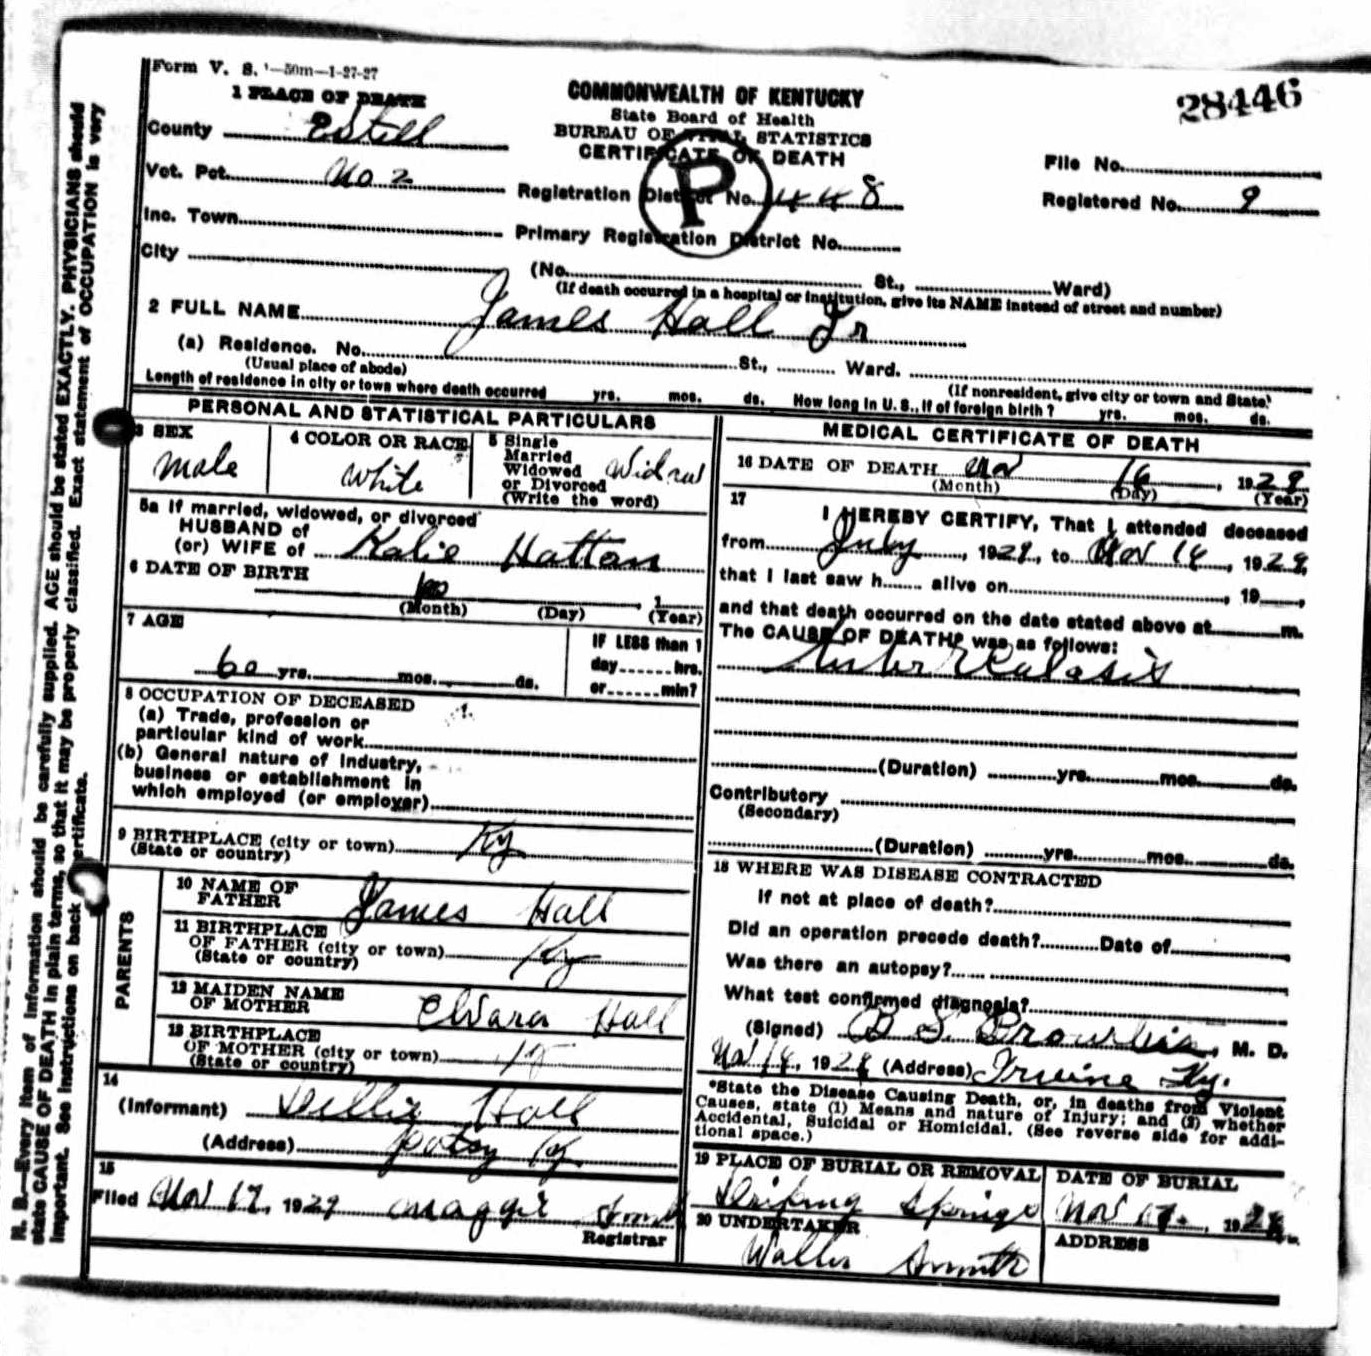 Form V. S. 1—50m—1-27-27
28446
1 PLACE OF DEATH
COMMONWEALTH OF KENTUCKY
State Board of Health
BUREAU OF VITAL STATISTICS
CERTIFICATE OF DEATH
P
County Estill
File No.
Vot. Pct. No 2
Registration District No. 448
Registered No. 9
Inc. Town
Primary Registration District No.
City
(No. St., Ward)
(If death occurred in a hospital or institution, give its NAME instead of street and number)
2 FULL NAME James Hall Jr
(a) Residence. No. St., Ward.
(Usual place of abode)
(If nonresident, give city or town and State)
Length of residence in city or town where death occurred yrs. mos. ds. How long in U. S., if of foreign birth? yrs. mos. ds.
PERSONAL AND STATISTICAL PARTICULARS
3 SEX
Male
4 COLOR OR RACE
White
5 Single
Married
Widowed
or Divorced
(Write the word)
Widow
5a If married, widowed, or divorced
HUSBAND of
(or) WIFE of Katie Hatton
6 DATE OF BIRTH
(Month) (Day) , 1 (Year)
7 AGE
60 yrs. mos. ds.
IF LESS than 1
day hrs.
or min?
8 OCCUPATION OF DECEASED
(a) Trade, profession or
particular kind of work
(b) General nature of industry,
business or establishment in
which employed (or employer)
9 BIRTHPLACE (city or town) Ky
(State or country)
PARENTS
10 NAME OF
FATHER James Hall
11 BIRTHPLACE
OF FATHER (city or town) Ky
(State or country)
12 MAIDEN NAME
OF MOTHER Hall
13 BIRTHPLACE
OF MOTHER (city or town)
(State or country)
14
(Informant) Hall
(Address) Patsy Ky
15
Filed Nov 17, 1929 Maggie Smith
Registrar
MEDICAL CERTIFICATE OF DEATH
16 DATE OF DEATH Nov 16, 1929
(Month) (Day) (Year)
17
I HEREBY CERTIFY, That I attended deceased
from July, 1929, to Nov, 1929,
that I last saw h alive on , 19 ,
and that death occurred on the date stated above at m.
The CAUSE OF DEATH* was as follows:
Tuberculosis
(Duration) yrs. mos. ds.
Contributory
(Secondary)
(Duration) yrs. mos. ds.
18 WHERE WAS DISEASE CONTRACTED
If not at place of death?
Did an operation precede death? Date of
Was there an autopsy?
What test confirmed diagnosis?
(Signed) , M. D.
Nov, 1929 (Address) Irvine Ky.
*State the Disease Causing Death, or, in deaths from Violent
Causes, state (1) Means and nature of Injury; and (2) whether
Accidental, Suicidal or Homicidal. (See reverse side for addi-
tional space.)
19 PLACE OF BURIAL OR REMOVAL
Springs
DATE OF BURIAL
Nov 17, 1929
20 UNDERTAKER
Smith
ADDRESS
N. B.—Every item of information should be carefully supplied. AGE should be stated EXACTLY. PHYSICIANS should
state CAUSE OF DEATH in plain terms, so that it may be properly classified. Exact statement of OCCUPATION is very
important. See instructions on back certificate.